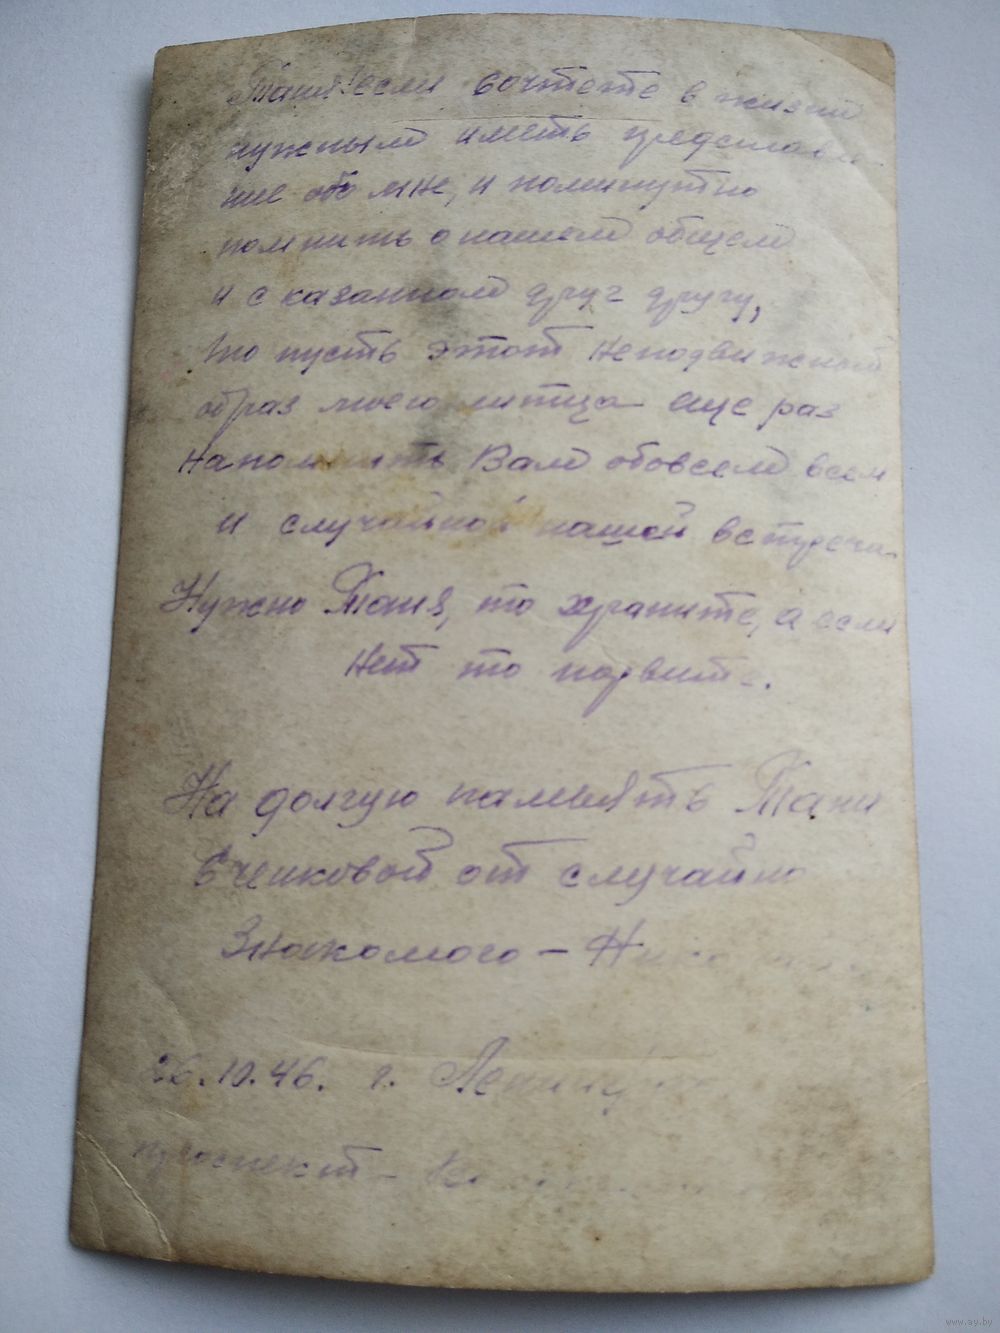 Таня! если сочтете в жизни
нужным иметь представле-
ние обо мне, и поминутно
помнить о нашем общем
и сказанном друг другу,
то пусть этот неподвижной
образ моего литца еще раз
напомнить Вам обовсем всем
и случайной нашой встречи.
Нужно Таня, то храните, а если
нет то порвите.
На долгую памьять Тани
от случайно
Знакомого –
26.10.46. г.
проспект –
www.ay.by